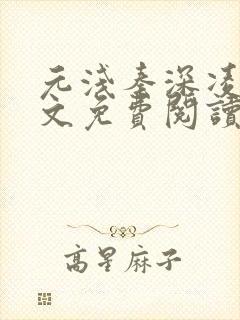 元淺秦深凌
文免費閱讀
高星麻子